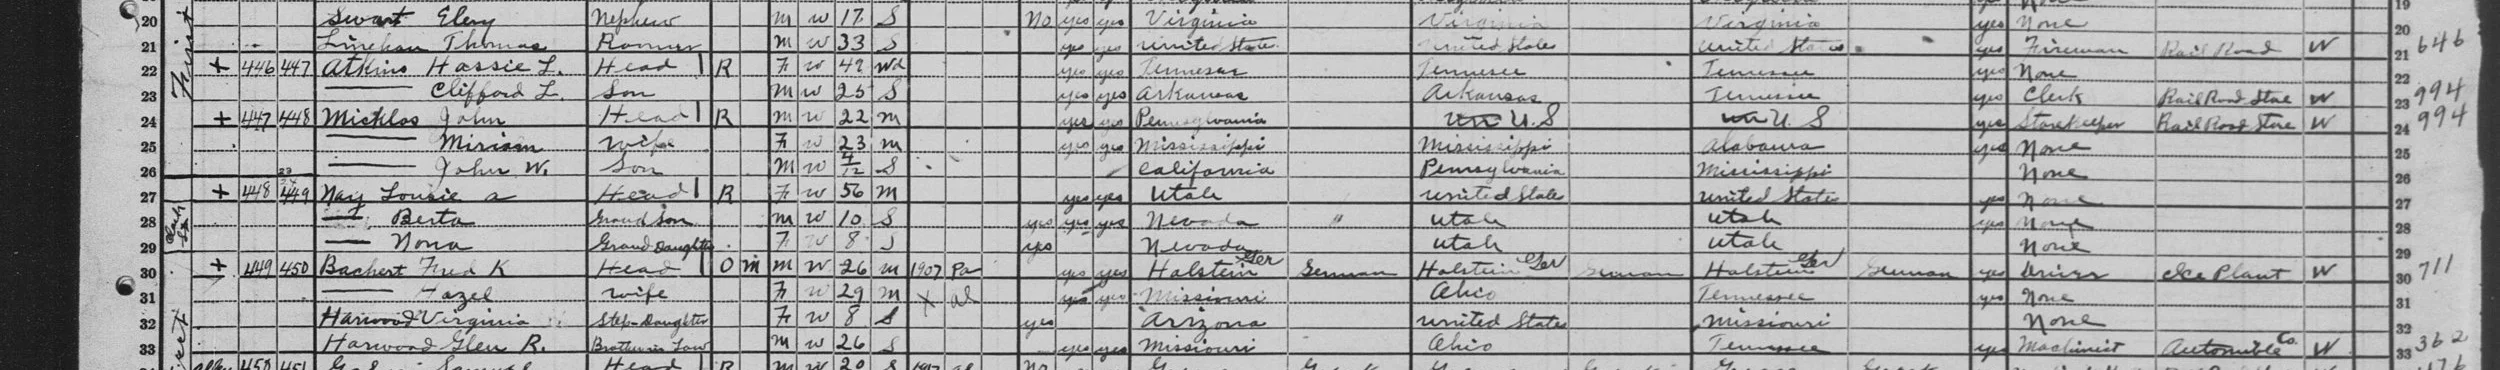 20 Swart Elery Nephew M W 17 S No yes yes Virginia Virginia Virginia yes None 20
21 Linehan Thomas Roomer M W 33 S yes yes United States United States United States yes Fireman Rail Road W 21 646
22 + 446 447 Atkins Hassie L. Head 1 R F W 49 Wd yes yes Tennessee Tennessee Tennessee yes None 22
23 — Clifford L. Son M W 25 S yes yes Arkansas Arkansas Tennessee yes Clerk Rail Road Store W 23 994
24 + 447 448 Micklos John Head 1 R M W 22 M yes yes Pennsylvania U.S U.S yes Storekeeper Rail Road Store W 24 994
25 — Miriam wife F W 23 M yes yes Mississippi Mississippi Alabama yes None 25
26 — John W. Son M W 4/12 S California Pennsylvania Mississippi None 26
27 + 448 449 Nay Lousie a Head 1 R F W 56 M yes yes Utah United States United States yes None 27
28 — Berta Grand Son M W 10 S yes yes yes Nevada " Utah Utah yes None 28
29 — Nona Grand Daughter F W 8 S yes Nevada Utah Utah None 29
30 + 449 450 Bachert Fred K Head 1 O M M W 26 M 1907 Pa yes yes Halstein Ger German Halstein Ger German Halstein Ger German yes Driver Ice Plant W 30 711
31 — Hazel wife F W 29 M X al yes yes Missouri Ohio Tennessee yes None 31
32 Harwood Virginia Step-Daughter F W 8 S yes Arizona United States Missouri None 32
33 Harwood Glen R. Brother in Law M W 26 S yes yes Missouri Ohio Tennessee yes Machinist Automible Co. W 33 362
450 451 Samuel Head 1 R M W 20 S